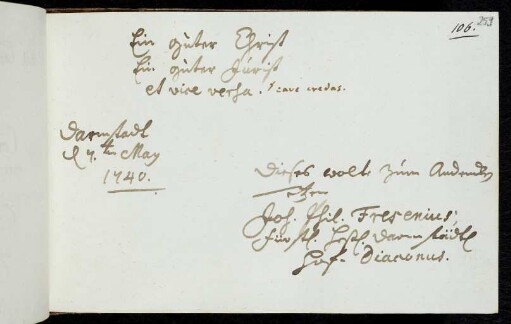 106. 253
Ein guter Christ
Ein guter Jurist
et vice versa. + cave credas.
Darmstadt
d 7.ten May
1740.
Dieses wolte zum Andencken
setzen
Joh. Phil. Fresenius,
Fürstl. Hessl. Darmstädtl.
Hof-Diaconus.